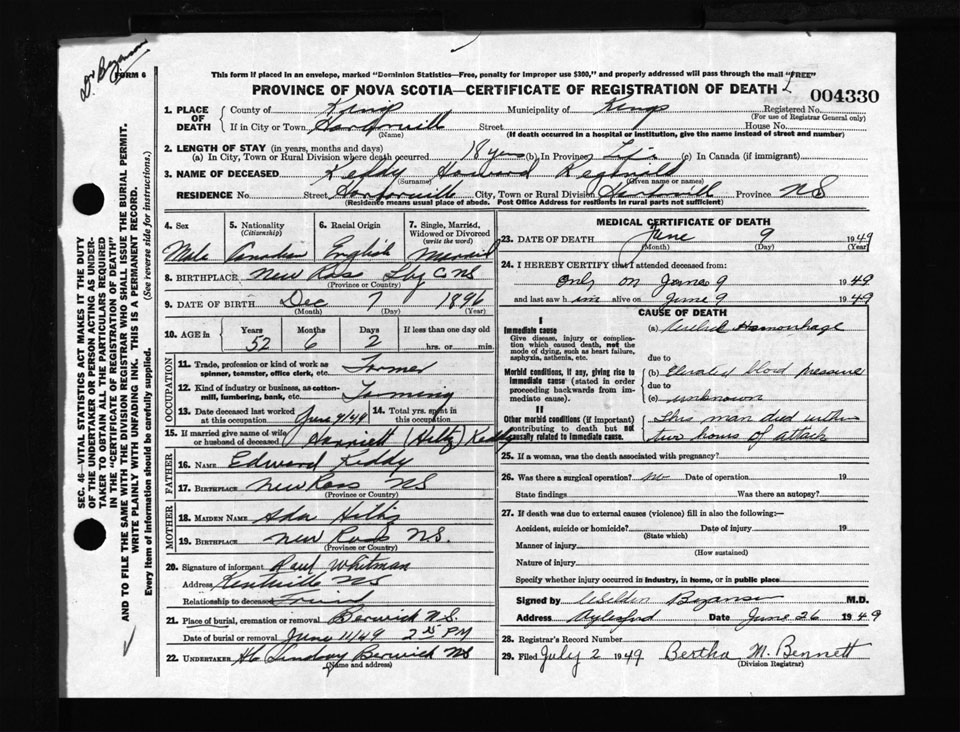 Dr Bezanson
FORM 6
This form if placed in an envelope, marked "Dominion Statistics—Free, penalty for improper use $300," and properly addressed will pass through the mail "FREE"
PROVINCE OF NOVA SCOTIA—CERTIFICATE OF REGISTRATION OF DEATH
004330
1. PLACE OF DEATH
County of Kings Municipality of Kings Registered No.
(For use of Registrar General only)
If in City or Town Street House No.
(Name) (If death occurred in a hospital or institution, give the name instead of street and number)
2. LENGTH OF STAY (in years, months and days)
(a) In City, Town or Rural Division where death occurred 18 yrs (b) In Province Life (c) In Canada (if immigrant)
3. NAME OF DECEASED Keddy Howard Reginald
(Surname) (Given name or names)
RESIDENCE No. Street City, Town or Rural Division Province NS
(Residents means usual place of abode. Post Office Address for residents in rural parts not sufficient)
4. Sex Male
5. Nationality (Citizenship) Canadian
6. Racial Origin English
7. Single, Married, Widowed or Divorced (write the word) Married
8. BIRTHPLACE New Ross C NS
(Province or Country)
9. DATE OF BIRTH Dec 7 1896
(Month) (Day) (Year)
10. AGE in Years Months Days If less than one day old
52 6 2 hrs. or min.
OCCUPATION
11. Trade, profession or kind of work as spinner, teamster, office clerk, etc. Farmer
12. Kind of industry or business, as cotton-mill, lumbering, bank, etc. Farming
13. Date deceased last worked at this occupation June 9/49
14. Total yrs. spent in this occupation
15. If married give name of wife or husband of deceased Harriett (Hiltz) Keddy
FATHER
16. NAME Edward Keddy
17. BIRTHPLACE New Ross NS
(Province or Country)
MOTHER
18. MAIDEN NAME Ada Hiltz
19. BIRTHPLACE New Ross N.S.
(Province or Country)
20. Signature of informant Paul Whitman
Address Kentville NS
Relationship to deceased Friend
21. Place of burial, cremation or removal Berwick N.S.
Date of burial or removal June 11/49 PM
22. UNDERTAKER Lindsay Berwick NS
(Name and address)
MEDICAL CERTIFICATE OF DEATH
23. DATE OF DEATH June 9 1949
(Month) (Day) (Year)
24. I HEREBY CERTIFY that I attended deceased from:
only on June 9 1949
and last saw him alive on June 9 1949
CAUSE OF DEATH
I
Immediate cause
Give disease, injury or complication which caused death, not the mode of dying, such as heart failure, asphyxia, asthenia, etc.
(a) Hemorrhage
due to
Morbid conditions, if any, giving rise to immediate cause (stated in order proceeding backwards from immediate cause).
(b) Elevated blood pressure
due to
(c) unknown
II
Other morbid conditions (if important) contributing to death but not causally related to immediate cause.
This man died within
two hours of attack
25. If a woman, was the death associated with pregnancy?
26. Was there a surgical operation? No Date of operation 19
State findings Was there an autopsy?
27. If death was due to external causes (violence) fill in also the following:—
Accident, suicide or homicide? Date of injury 19
(State which)
Manner of injury
(How sustained)
Nature of injury
Specify whether injury occurred in industry, in home, or in public place
Signed by Bezanson M.D.
Address Aylesford Date June 26 1949
28. Registrar's Record Number
29. Filed July 2 1949 Bertha M. Bennett
(Division Registrar)
SEC. 46—VITAL STATISTICS ACT MAKES IT THE DUTY
OF THE UNDERTAKER OR PERSON ACTING AS UNDER-
TAKER TO OBTAIN ALL THE PARTICULARS REQUIRED
IN THE "CERTIFICATE OF REGISTRATION OF DEATH"
AND TO FILE THE SAME WITH THE DIVISION REGISTRAR WHO SHALL ISSUE THE BURIAL PERMIT.
WRITE PLAINLY WITH UNFADING INK. THIS IS A PERMANENT RECORD.
Every item of information should be carefully supplied. (See reverse side for instructions.)